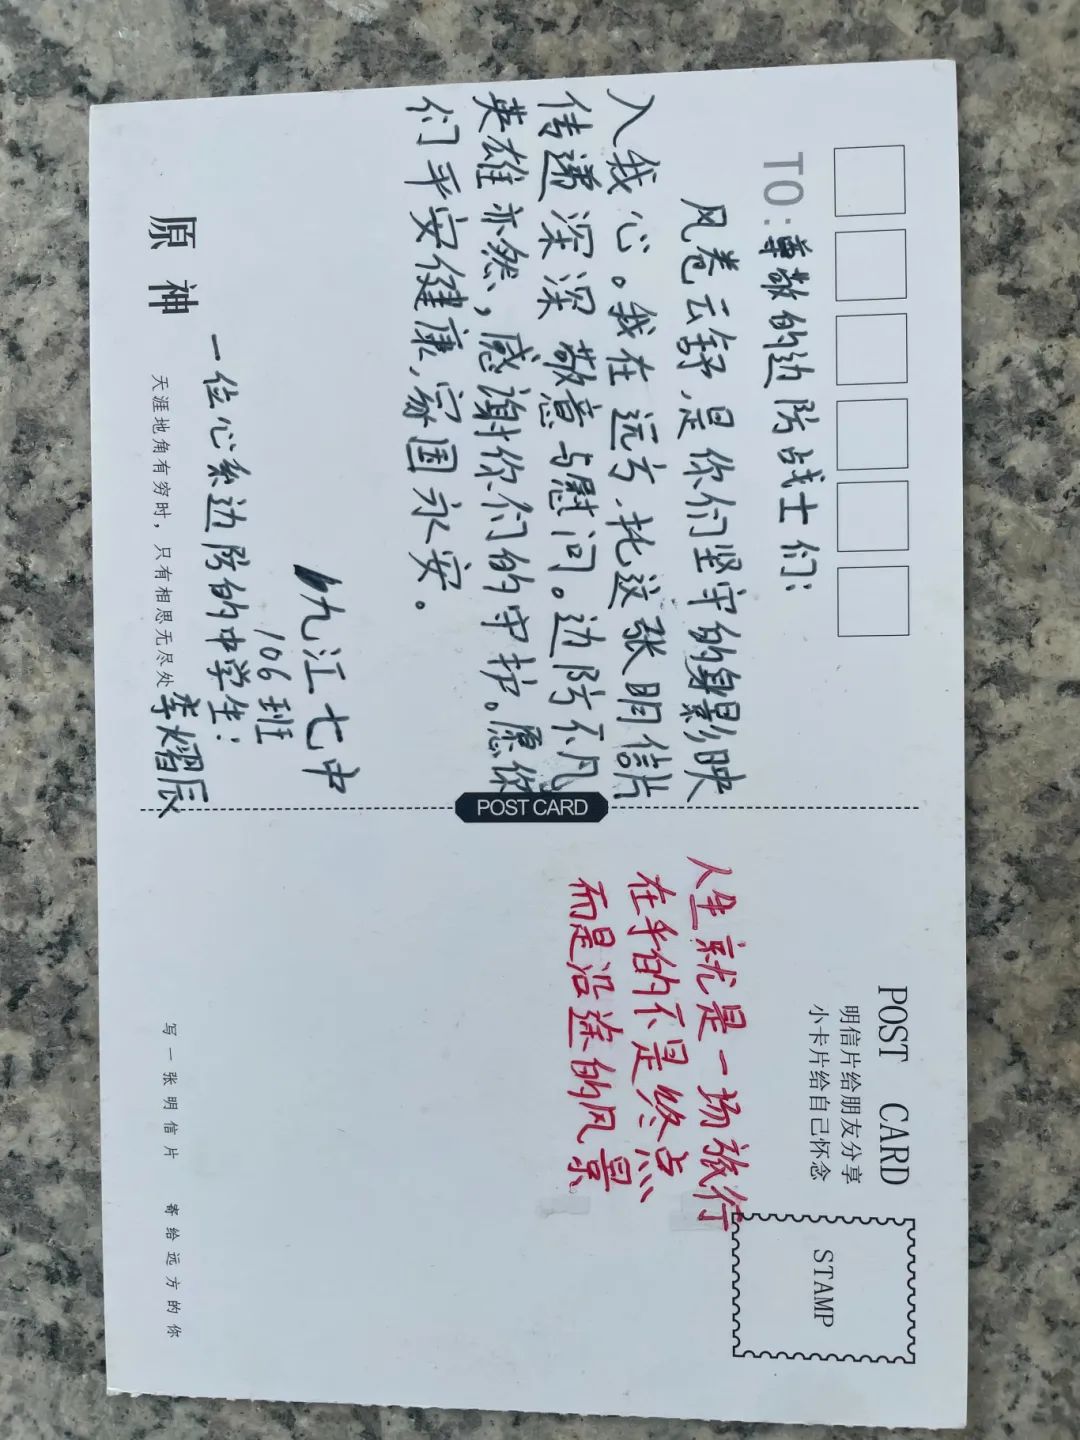 TO:尊敬的边防战士们:
风卷云舒,是你们坚守的身影映
入我心。我在远方,托这张明信片
传递深深敬意与慰问。边防不凡
英雄亦然,感谢你们的守护。愿你
们平安健康,家国永安。
九江七中
106班
一位心系边防的中学生:
李熠辰
原神
天涯地角有穷时,只有相思无尽处
POST CARD
POST CARD
明信片给朋友分享
小卡片给自己怀念
STAMP
人生就是一场旅行
在乎的不是终点
而是沿途的风景
写一张明信片 寄给远方的你